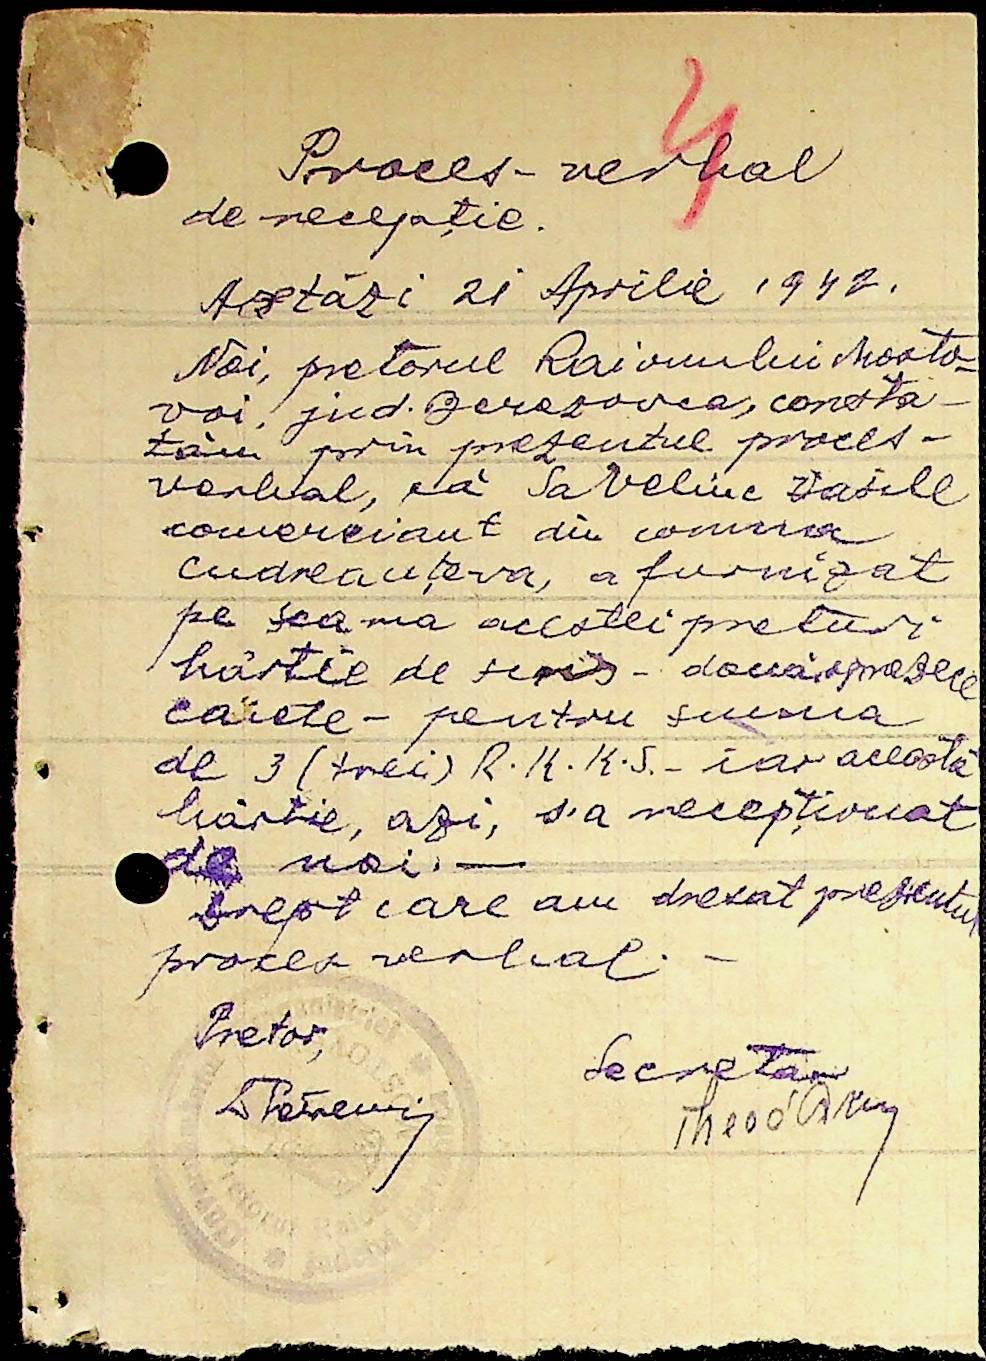 4
Proces-verbal
de recepție.
Astăzi 21 Aprilie 1942.
Noi, pretorul Raionului Mosto-
voi, jud. Berezovca, consta-
tăm prin prezentul proces-
verbal, că Saveliuc Vasile
comerciant din comuna
a furnizat
pe seama acestei preturi
hârtie de scris - douăsprezece
caiete - pentru suma
de 3 (trei) R.K.K.S. - iar aceastâ
hârtie, azi, s'a recepționat
de noi. —
Drept care am dresat prezentul
proces verbal. -
Pretor,
Secretar